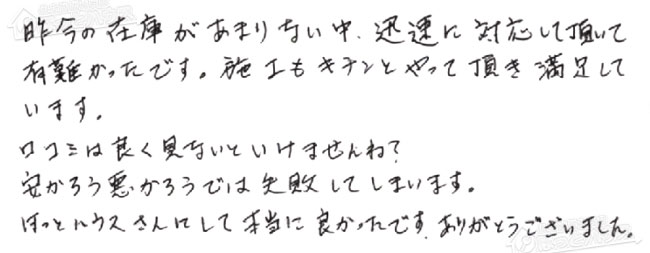 昨今の在庫があまりない中、迅速に対応して頂いて
有難かったです。施工もキチンとやって頂き満足して
います。
口コミは良く見ないといけませんね?
安かろう悪かろうでは失敗してしまいます。
ほっとハウスさんにして本当に良かったです。ありがとうございました。